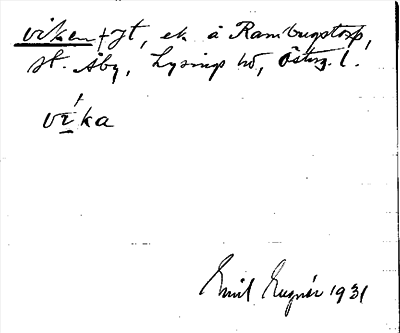 viken + Jt, ek å Rambugstorp,
St. Åby, Lysings hd, Östg. l.
vi̱ka
Emil Eugnér 1931